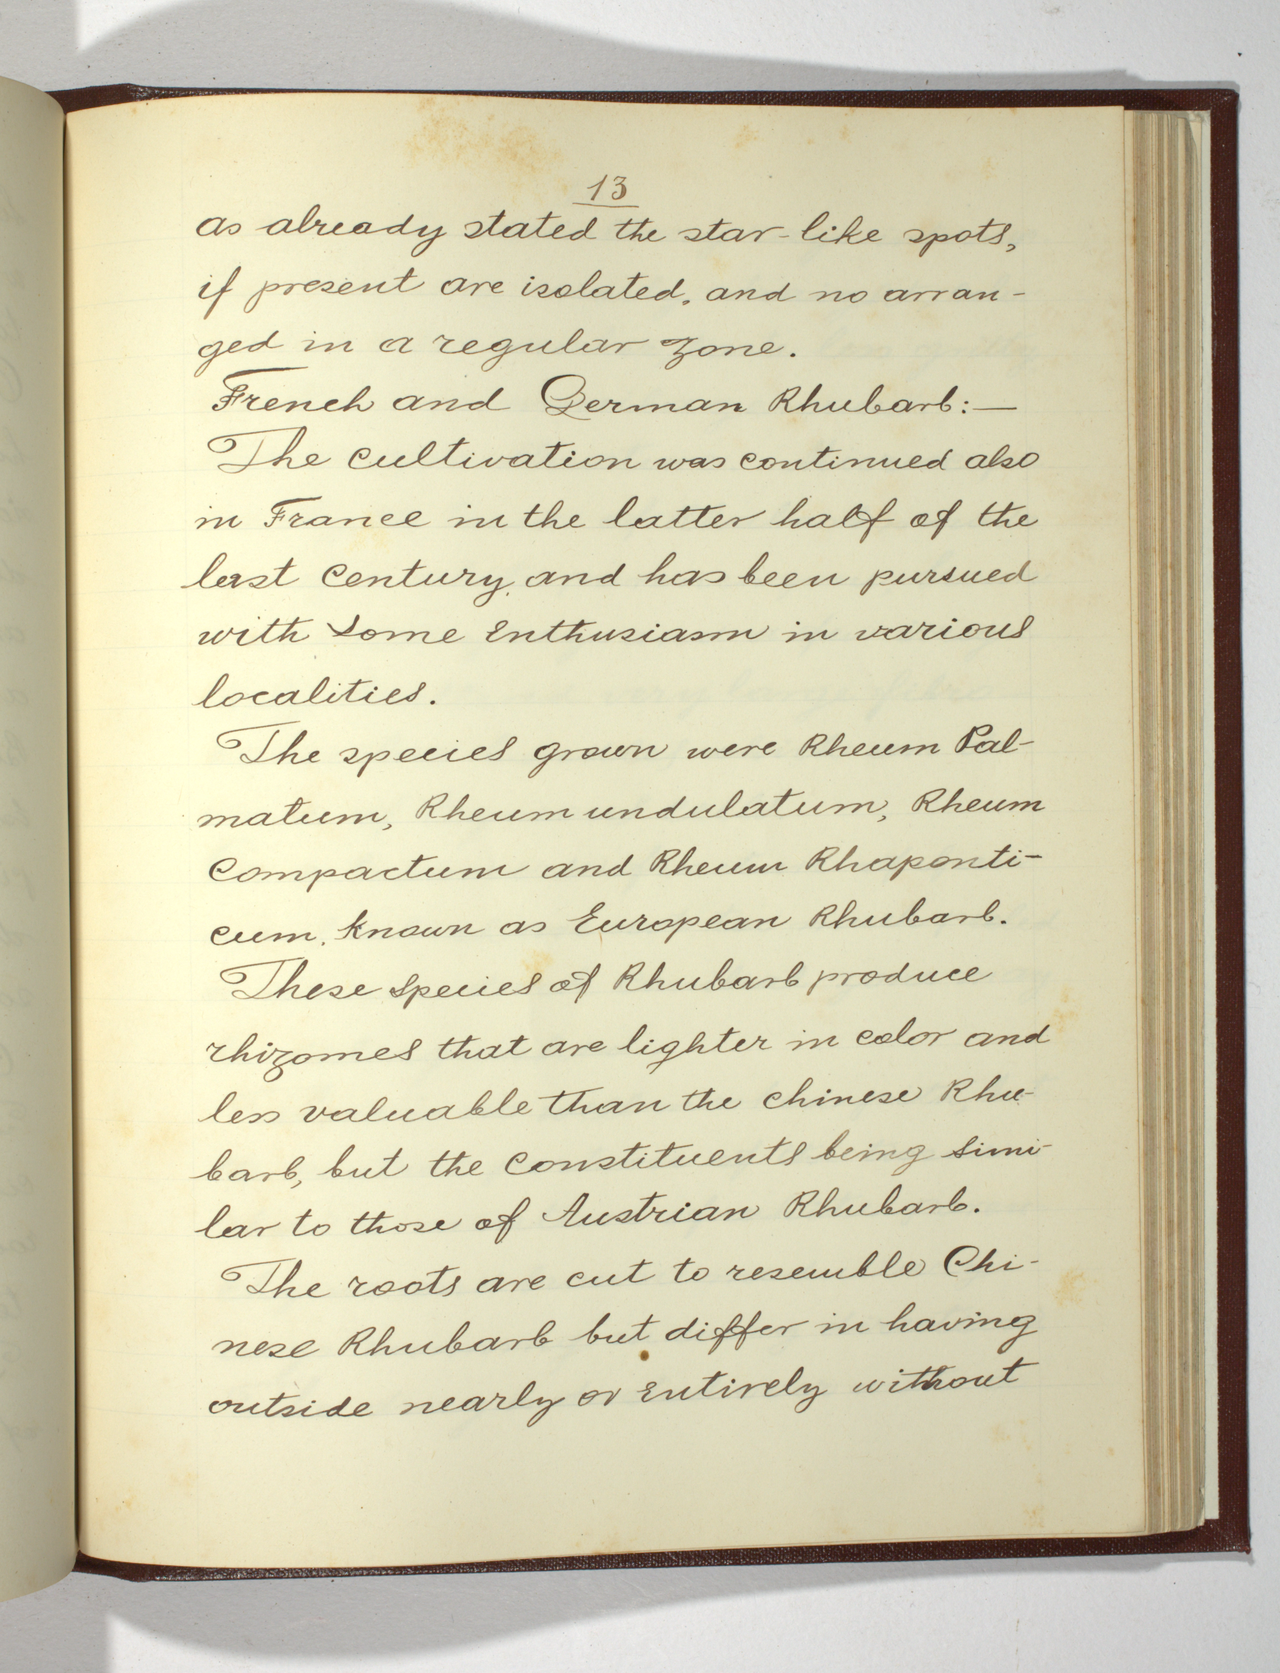 13
as already stated the star-like spots,
if present are isolated, and no arran-
ged in a regular zone.
French and German Rhubarb:—
The cultivation was continued also
in France in the latter half of the
last century, and has been pursued
with some enthusiasm in various
localities.
The species grown were Rheum Pal-
matum, Rheum undulatum, Rheum
Compactum and Rheum Rhaponti-
cum, known as European Rhubarb.
These species of Rhubarb produce
rhizomes that are lighter in color and
less valuable than the chinese Rhu-
barb, but the constituents being simi-
lar to those of Austrian Rhubarb.
The roots are cut to resemble Chi-
nese Rhubarb but differ in having
outside nearly or entirely without